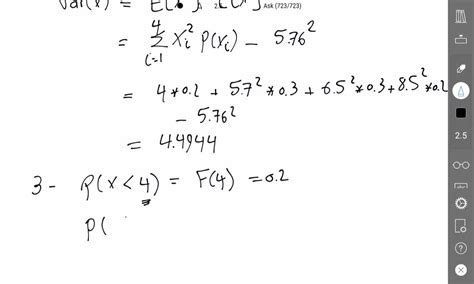 Var(x) = E[ ] [ ] Ask (723/723)
= 4 Σ i=1 Xi² P(Xi) - 5.76²
= 4*0.2 + 5.7²*0.3 + 6.5²*0.3 + 8.5²*0.2
- 5.76²
= 4.4944
3 - P(X < 4) = F(4) = 0.2
P(
2.5